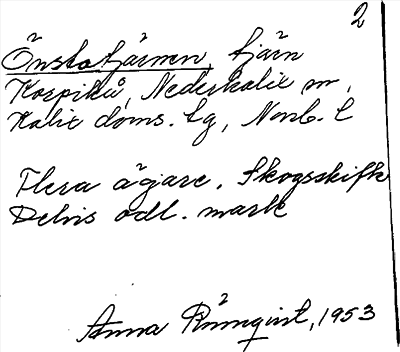 2
Önstatjärnen, tjärn
Korpikå, Nederkalix sn,
Kalix doms. lg, Norrb. l
Flera ägare. Skogsskifte
Delvis odl. mark
Anna Rönnqvist, 1953